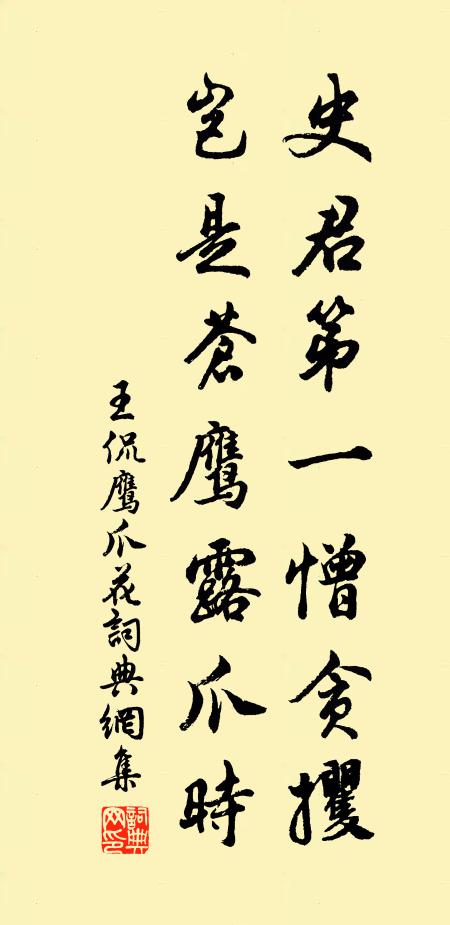 史君第一憎贪攫
岂是苍鹰露爪時
王侃鹰爪花詞典網集
詞典网印